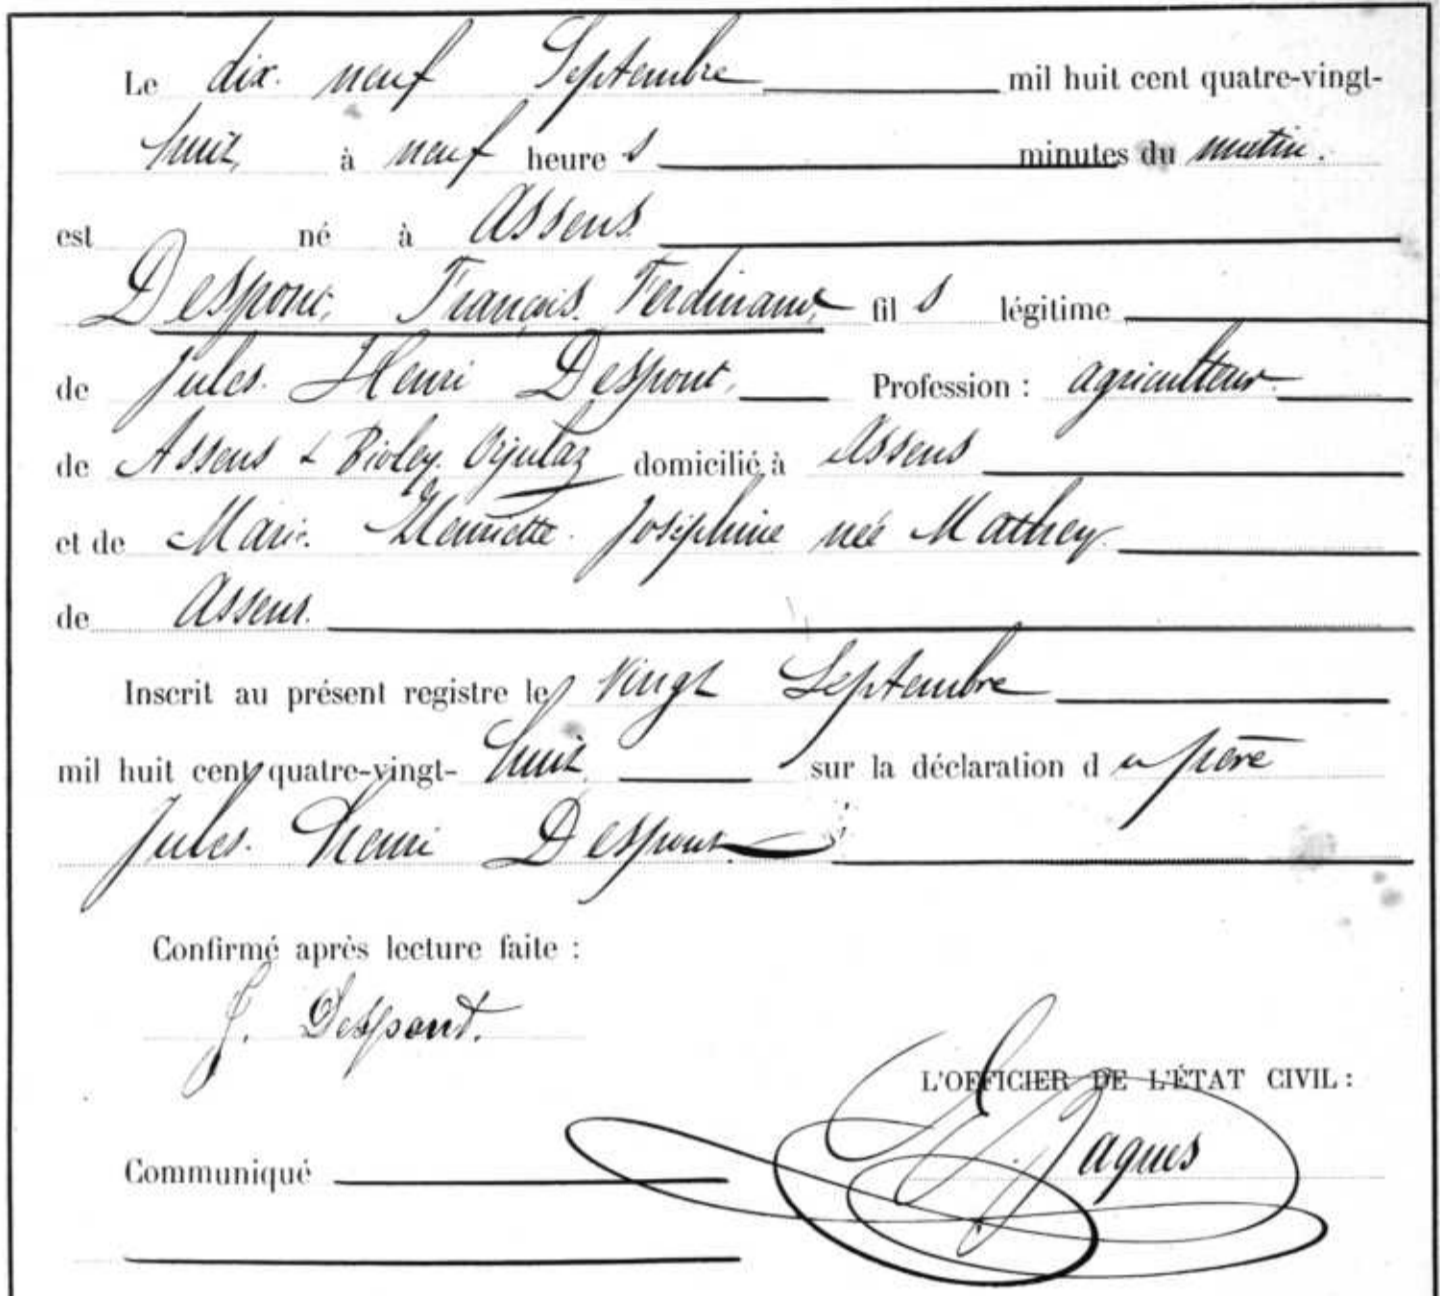 Le dix-neuf Septembre mil huit cent quatre-vingt-
huit, à neuf heures minutes du matin.
est né à Assens
Despont, François Ferdinand, fils légitime
de Jules Henri Despont, Profession : agriculteur
de Assens & Bioley Orjulaz domicilié à Assens
et de Marie Henriette Joséphine née Mathey
de Assens.
Inscrit au présent registre le Vingt Septembre
mil huit cent quatre-vingt-huit, sur la déclaration du père
Jules Henri Despont.
Confirmé après lecture faite :
J. Despont.
L'OFFICIER DE L'ÉTAT CIVIL :
Jaques
Communiqué